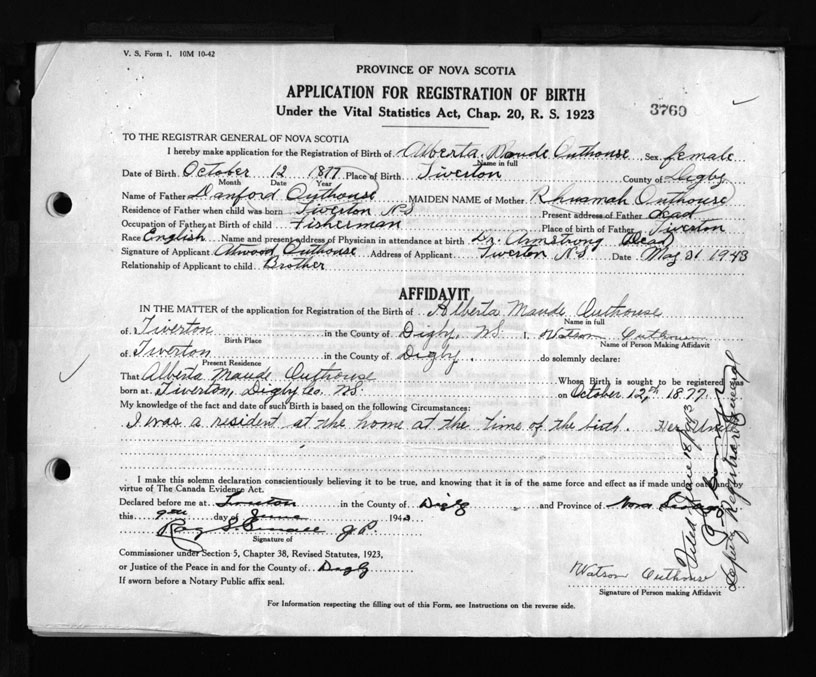 V. S. Form 1. 10M 10-42
PROVINCE OF NOVA SCOTIA
APPLICATION FOR REGISTRATION OF BIRTH
Under the Vital Statistics Act, Chap. 20, R. S. 1923
3760
TO THE REGISTRAR GENERAL OF NOVA SCOTIA
I hereby make application for the Registration of Birth of Alberta Maude Outhouse Sex female
Name in full
Date of Birth October 12 1877 Place of Birth Tiverton County of Digby
Month Date Year
Name of Father Danford Outhouse MAIDEN NAME of Mother Outhouse
Residence of Father when child was born Tiverton NS Present address of Father dead
Occupation of Father at Birth of child Fisherman Place of birth of Father Tiverton
Race English Name and present address of Physician in attendance at birth Dr. Armstrong Dead
Signature of Applicant Atwood Outhouse Address of Applicant Tiverton N.S Date May 31 1943
Relationship of Applicant to child Brother
AFFIDAVIT
IN THE MATTER of the application for Registration of the Birth of Alberta Maude Outhouse
Name in full
of Tiverton in the County of Digby, NS. I, Watson Outhouse
Birth Place Name of Person Making Affidavit
of Tiverton in the County of Digby. do solemnly declare:
Present Residence
That Alberta Maude Outhouse Whose Birth is sought to be registered was
born at Tiverton, Digby Co. NS. on October 12th 1877.
My knowledge of the fact and date of such Birth is based on the following Circumstances:
I was a resident at the home at the time of the birth. Her
I make this solemn declaration conscientiously believing it to be true, and knowing that it is of the same force and effect as if made under oath and by
virtue of The Canada Evidence Act.
Declared before me at in the County of Digby and Province of Nova Scotia
this day of 1943
J.P.
Signature of
Commissioner under Section 5, Chapter 38, Revised Statutes, 1923,
or Justice of the Peace in and for County of Digby
If sworn before a Notary Public affix seal.
Watson Outhouse
Signature of Person making Affidavit
For Information respecting the filling out of this Form, see Instructions on the reverse side.
Filed June 18/43
Deputy Registrar General